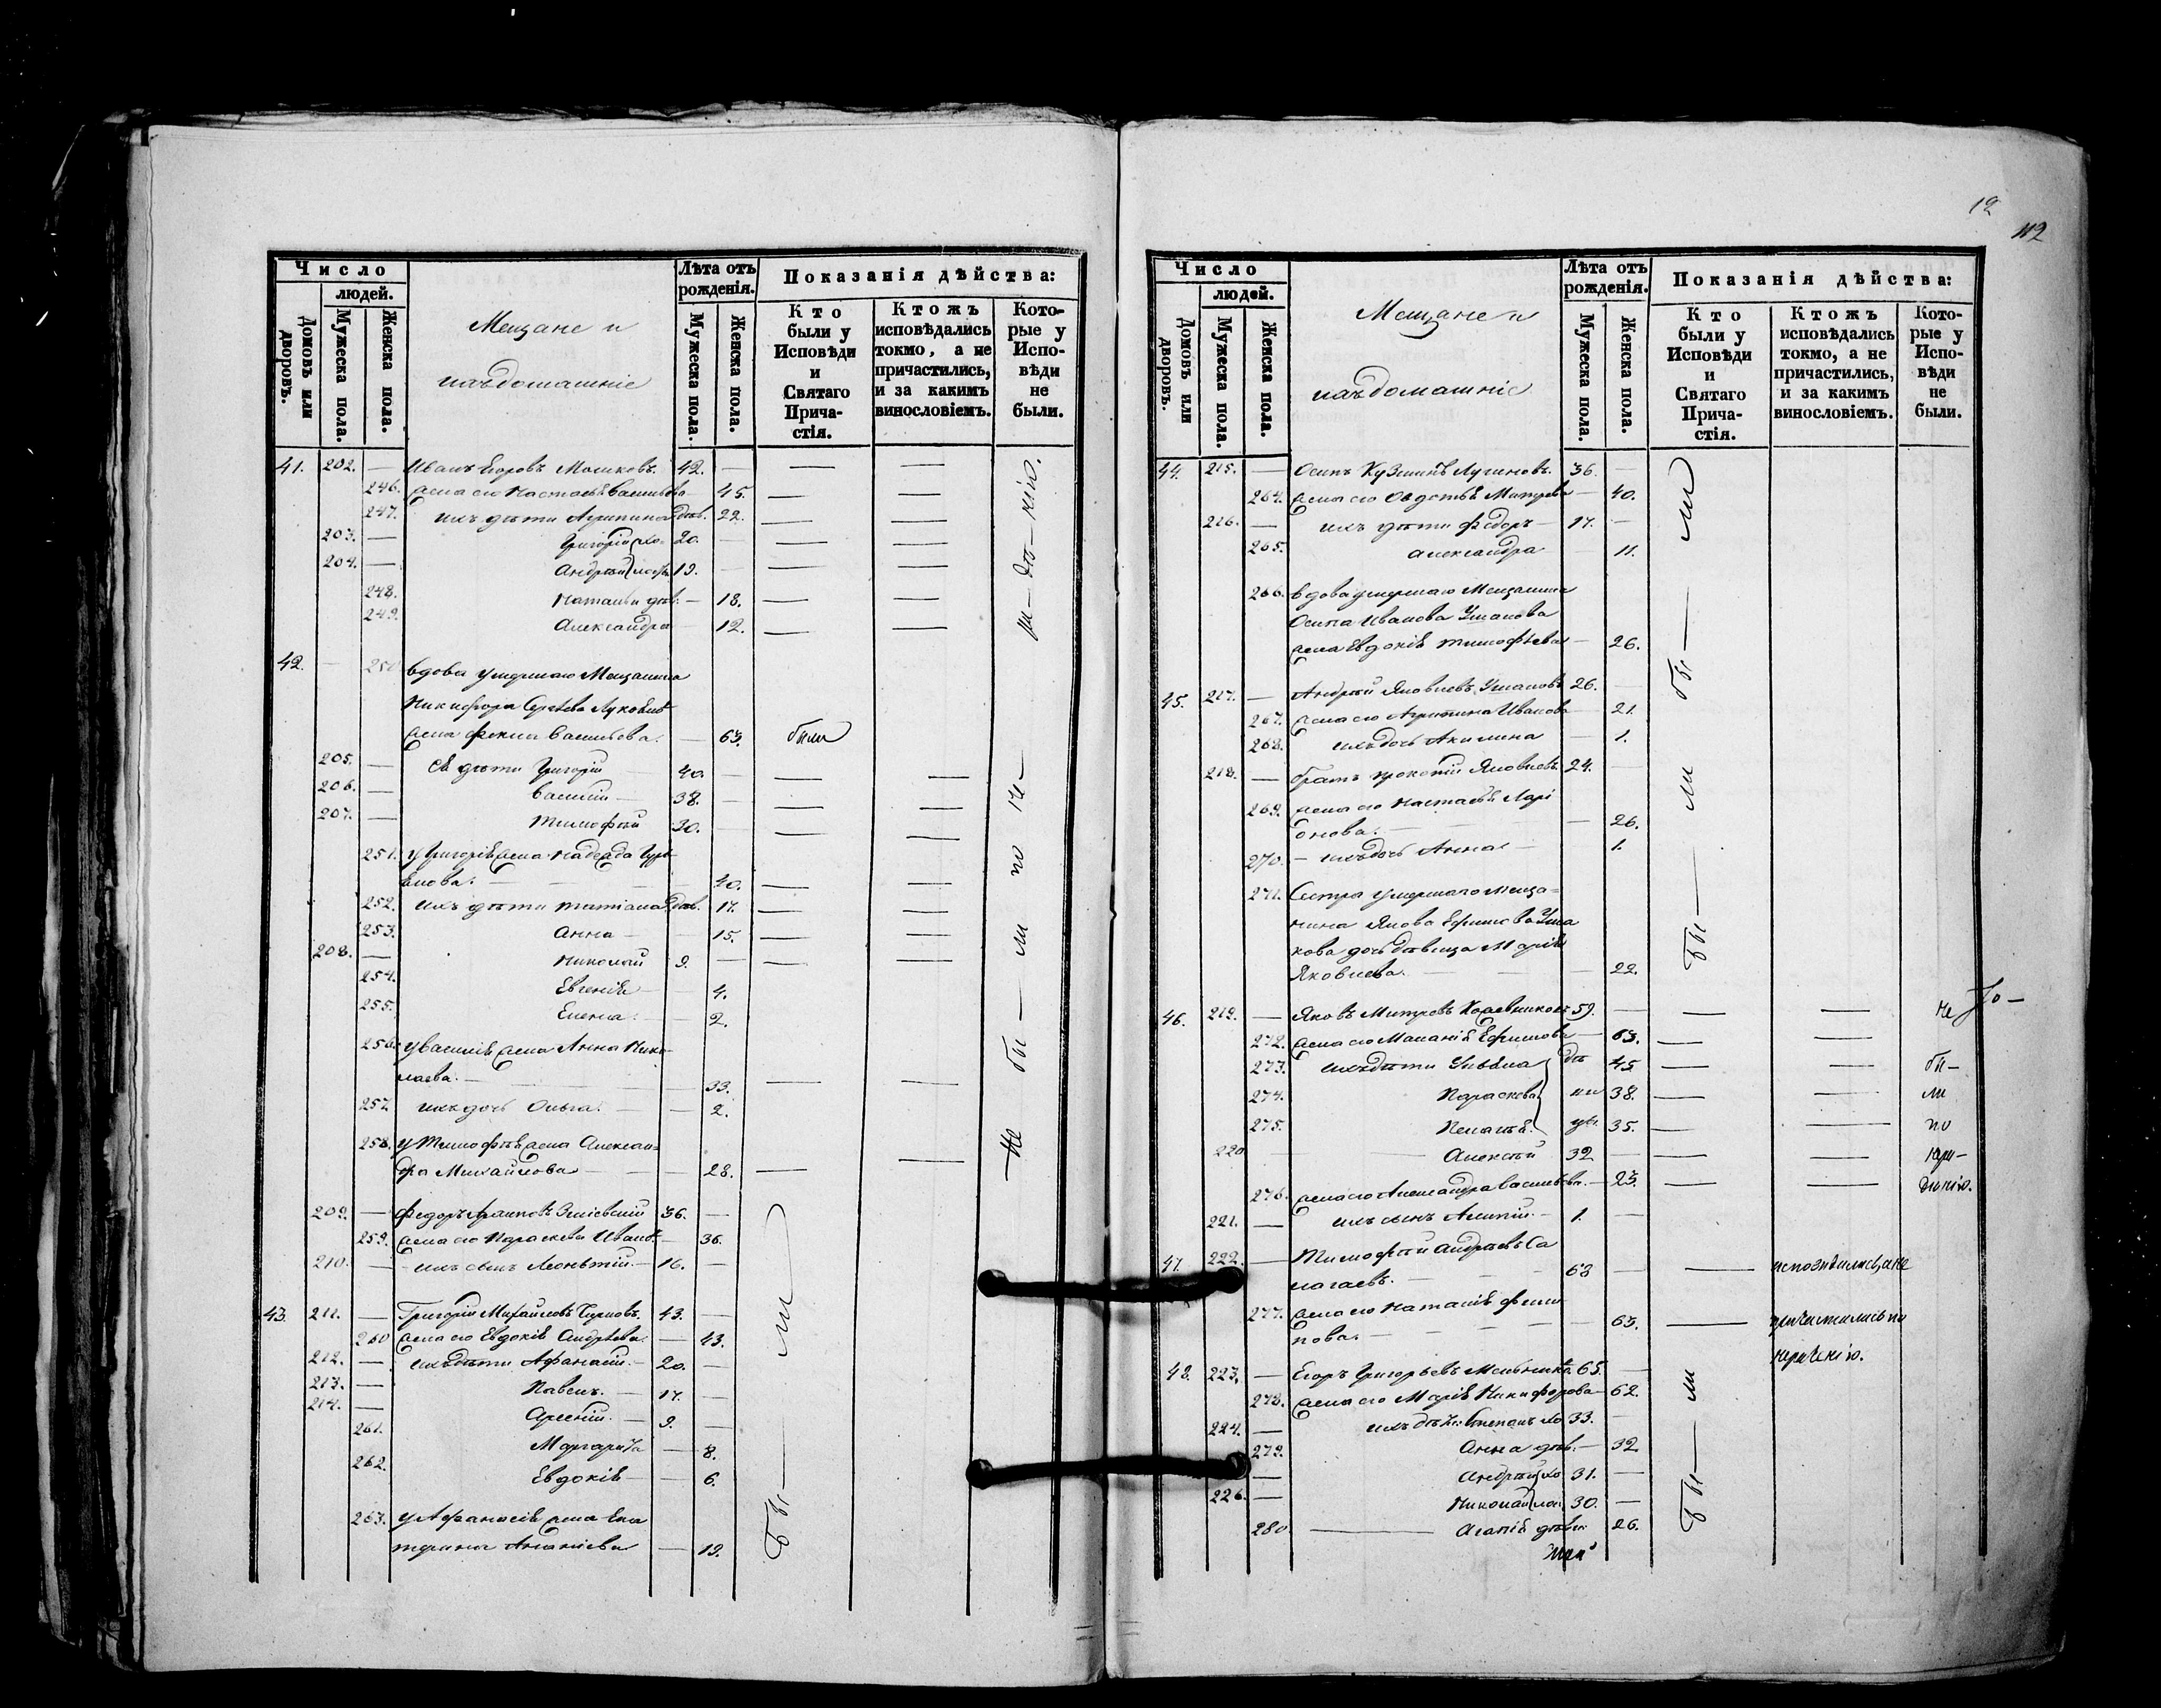 Число
людей.
Домовъ или дворовъ.
Мужеска пола.
Женска пола.
Мещане и
ихъ домашніе
Лѣта отъ рожденія.
Мужеска пола.
Женска пола.
Показанія дѣйства:
Кто были у Исповѣди и Святаго Прича-стія.
Ктожъ исповѣдались токмо, а не причастились, и за какимъ винословіемъ.
Кото-рые у Испо-вѣди не были.
41. 202. — Иванъ Егоровъ 42. — — —
246. жена его Настасья Васильева — 45. — —
247. ихъ дѣти Агрипина дѣв. 22. — —
203. — Григорій хо- 20. — — —
204. — Андрей лосты 19. — — —
248. Наталья дѣв. — 18. — —
249. Александра — 12. — —
42. — 250 вдова умершаго Мещанина
Никифора Сергѣева
жена Фекла Васильева. — 63. были
205. — Ея дѣти Григорій 40. — — —
206. — Василій — 38. — — —
207. — Тимофей 30. — — —
251. у Григорія жена Надежда Гурь-
янова. — 40. — —
252. ихъ дѣти Татіана дѣв. 17. — —
253. Анна — 15. — —
208. — Николай 9. — — —
254. Евгенія — 4.
255. Елена. — 2.
256. у Василія жена Анна Нико-
лаева. — 33. — —
257. ихъ дочь Ольга. — 2.
258. у Тимофея жена Алексан-
дра Михайлова — 28. — —
Не бы — ли по не —
209. — Федоръ 36. —
259. жена его Параскева Иван. — 36.
210. — ихъ сынъ Леонтій. — 16. —
43. 211. — Григорій Михайловъ 43. —
260 жена его Евдокія Андреева. — 43.
212. — ихъ дѣти Афанасій. — 20. —
213. — Павелъ. — 17. —
214. — Арсеній. — 9. —
261. Маргарита — 8.
262. Евдокія — — 6.
263. у Афанасія жена Ека
терина Ананіева — 19.
Бы — ли
12
112
Число
людей.
Домовъ или дворовъ.
Мужеска пола.
Женска пола.
Мещане и
ихъ домашніе
Лѣта отъ рожденія.
Мужеска пола.
Женска пола.
Показанія дѣйства:
Кто были у Исповѣди и Святаго Прича-стія.
Ктожъ исповѣдались токмо, а не причастились, и за какимъ винословіемъ.
Кото-рые у Испо-вѣди не были.
44. 215. — Осипъ Кузминъ Лугиновъ. 36. —
264. жена его Федотья Митрева — 40.
216. — ихъ дѣти Федоръ — 17. —
265. Александра — 11.
266. вдова умершаго Мещанина
Осипа Иванова Ушакова
жена Евдокія Тимофѣева — 26.
45. 217. — Андрей Яковлевъ Ушаковъ 26. —
267. жена его Агрипина Иванова — 21.
268. ихъ дочь Акилина — 1.
218. — братъ Прокопій Яковлевъ. 24. —
269. жена его Настасья Лари
онова. — 26.
270. — ихъ дочь Анна — 1.
271. Сестра умершаго меща-
нина Якова Ефимова Уша
кова дочь дѣвица Марія
Яковлева. — 22.
Бы — ли Бы — ли
46. 219. — Яковъ Митревъ Кожевниковъ 59. — — — Не
272. жена его Маланія Ефимова — 63. — —
273. ихъ дѣти Ульяна дѣ 45 — — бы-
274. Параскева ви 38. — — ли
275. Пелагея. цы. 35. — — по
220 — — Алексѣй 32 — — —
276. жена его Александра Васильева. — 23. — —
221. — ихъ сынъ Алипій. — 1. —
47. 222. — Тимофей Андреевъ Са
лагаевъ. — 63 — — исповѣдались, а не
277. жена его Наталія Фили
пова. — 63. — причастились по
нерачению.
48. 223. — Егоръ Григорьевъ 65. —
278. жена его Марія Никифорова — 62.
224. — ихъ дѣти: Степанъ хо 33. —
279. Анна дѣв. — 32
— Андрей хо 31. —
226. — Николай лос 30. —
280. — Агапія дѣви 26.
Бы — ли